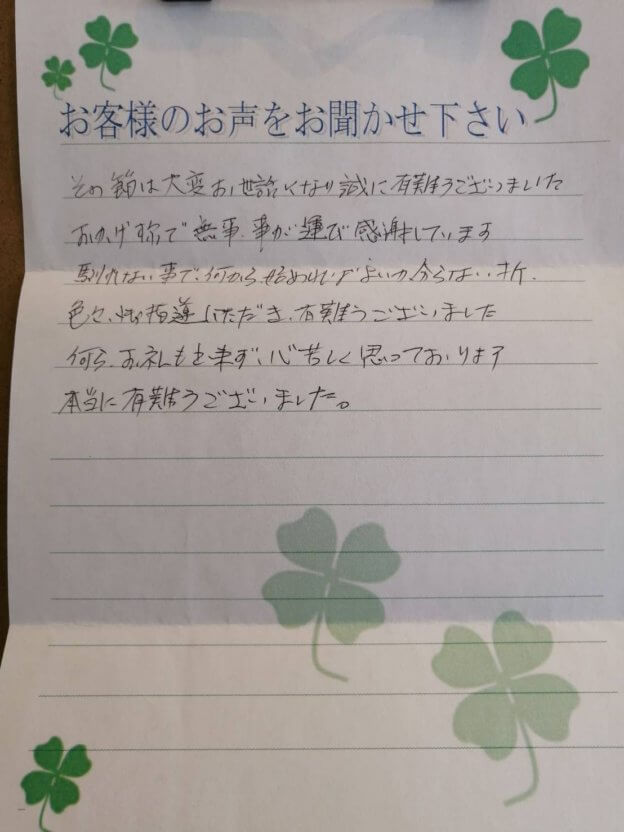 お客様のお声をお聞かせ下さい
その節は大変お世話になり誠に有難うございました
おかげ様で無事、事が運び感謝しています
馴れない事で、何から始めればよいか分らない折、
色々、御指導いただき、有難うございました
何ら、お礼も出来ず、心苦しく思っております
本当に有難うございました。